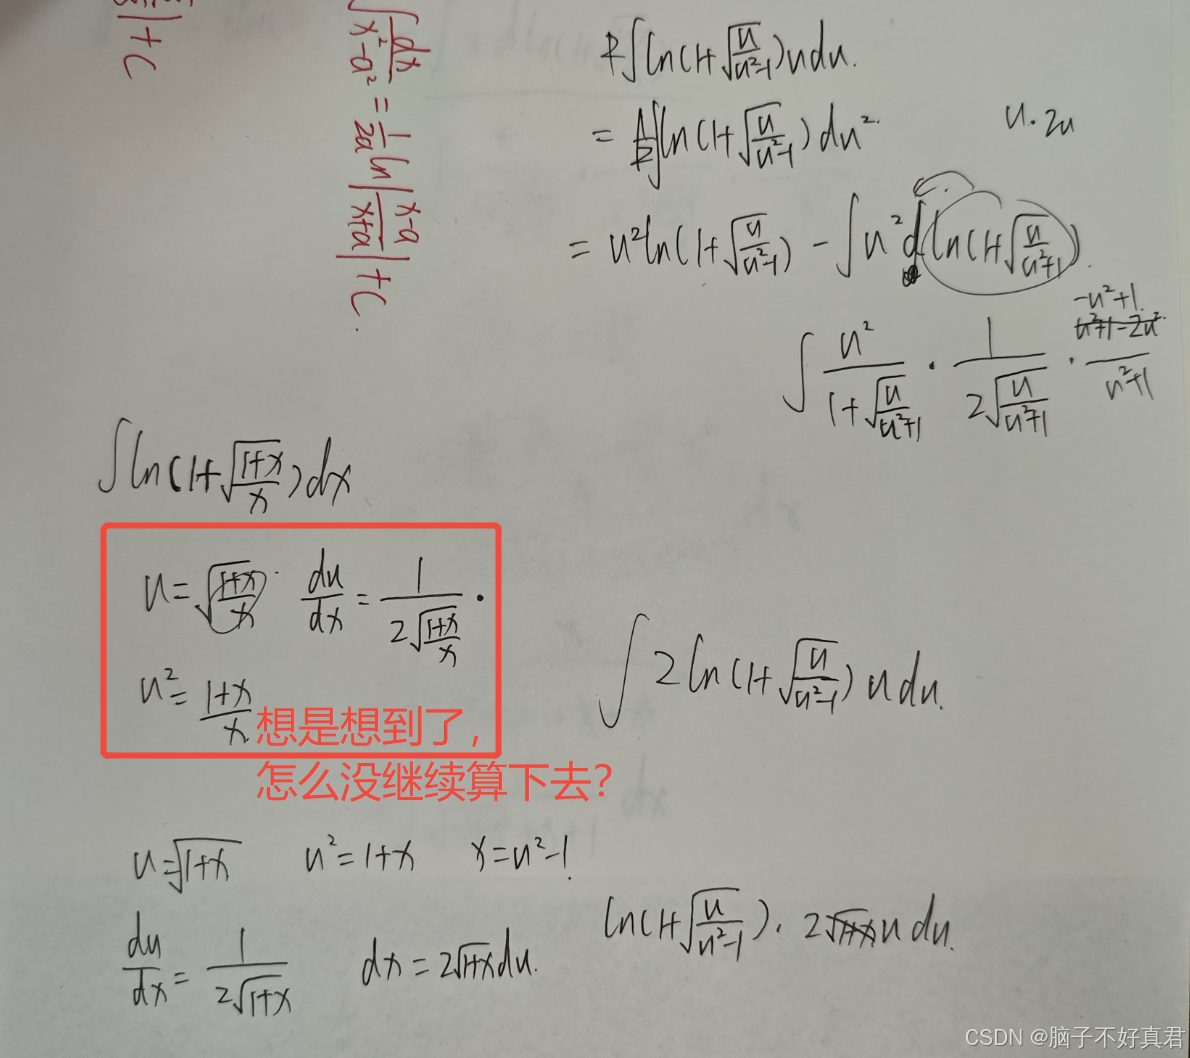 |+C
∫dx/(x²-a²) = 1/(2a) ln|(x-a)/(x+a)|+C.
2∫ln(1+√(u/(u²-1)))udu.
= 1/2∫ln(1+√(u/(u²-1)))du².
u·2u
= u²ln(1+√(u/(u²-1))) - ∫u²d ln(1+√(u/(u²+1))).
-u²+1.
u²+1-2u²
∫u²/(1+√(u/(u²+1))) · 1/(2√(u/(u²+1))) · /(u²+1)
∫ln(1+√((1+x)/x))dx
u=√((1+x)/x). du/dx = 1/(2√((1+x)/x)) ·
u² = (1+x)/x.
想是想到了，
怎么没继续算下去？
∫2ln(1+√(u/(u²-1)))udu.
u=√(1+x) u²=1+x x=u²-1.
du/dx = 1/(2√(1+x)) dx=2√(1+x)du.
ln(1+√(u/(u²-1))). 2√(1+x)udu.
CSDN @脑子不好真君